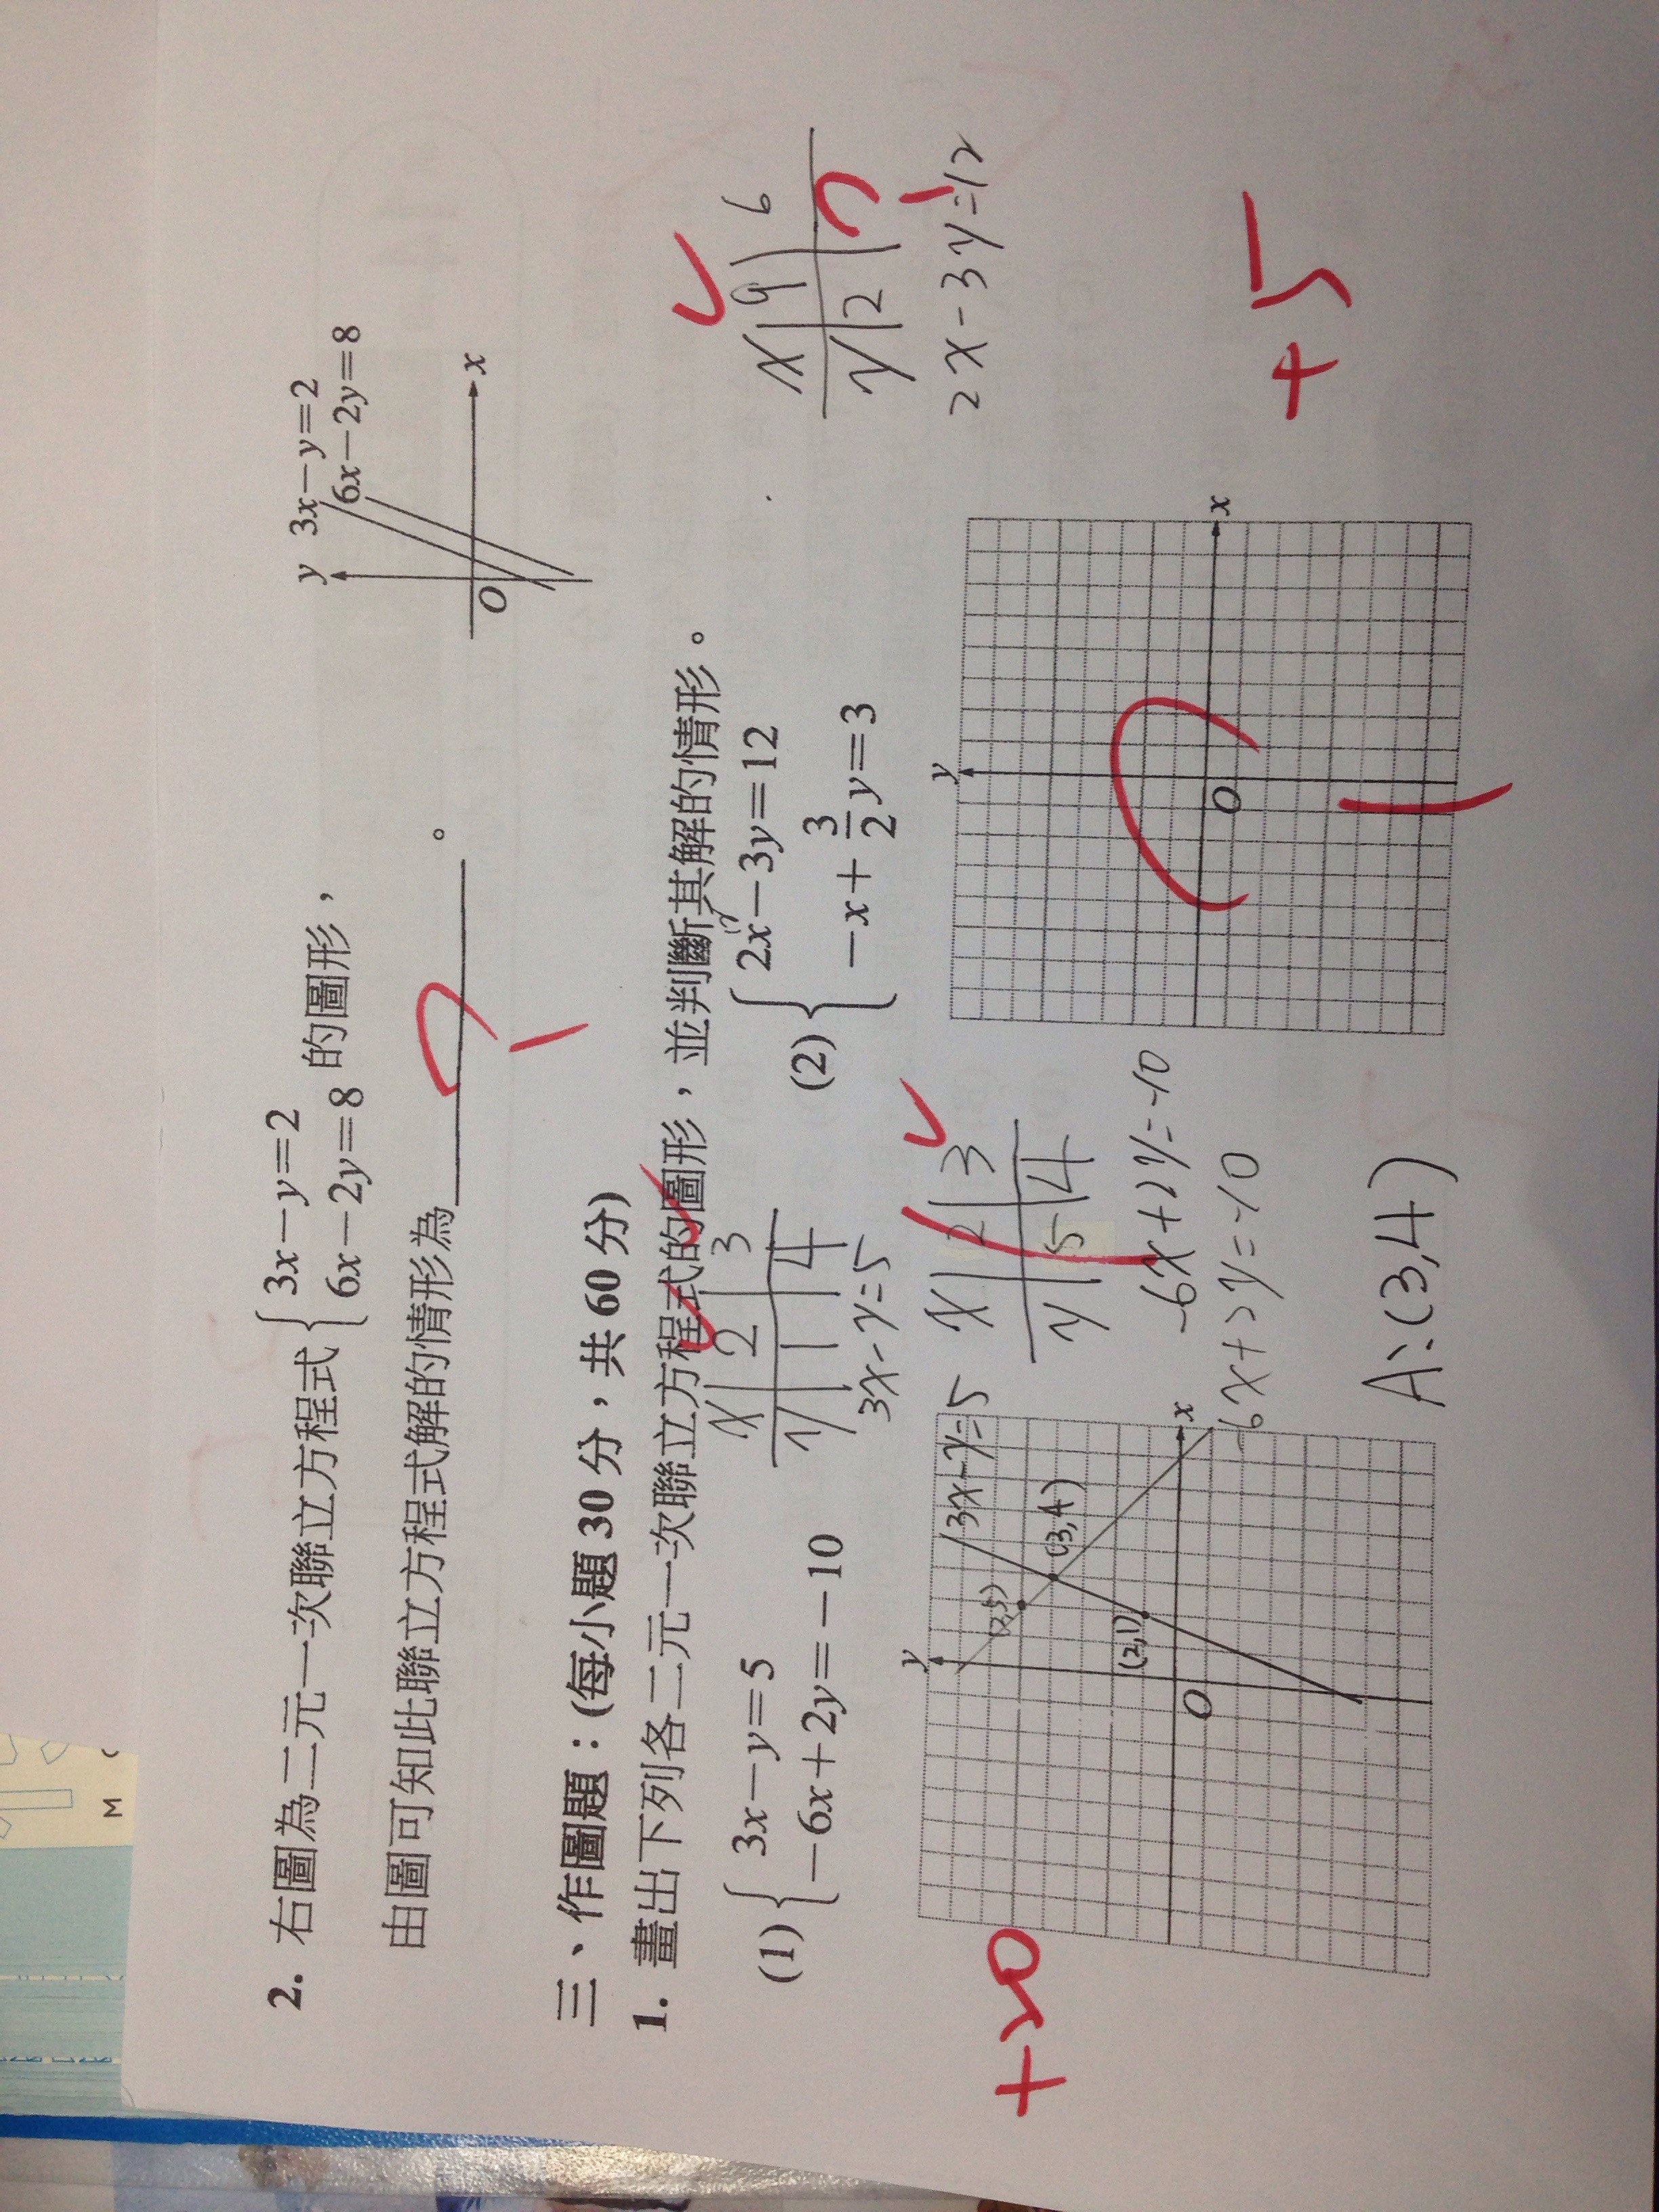 2. 右圖為二元一次聯立方程式 { 3x－y＝2
6x－2y＝8 的圖形，
由圖可知此聯立方程式解的情形為＿＿＿＿＿＿。
y
3x－y＝2
6x－2y＝8
O
x
三、作圖題：(每小題 30 分，共 60 分)
1. 畫出下列各二元一次聯立方程式的圖形，並判斷其解的情形。
(1) { 3x－y＝5
－6x＋2y＝－10
x | 2 | 3
y | 1 | 4
3x-y=5
(2) { 2x－3y＝12
－x＋3/2 y＝3
x | 9 | 6
y | 2 |
2x-3y=12
+20
y
3x-y=5
(2,5)
(3,4)
(2,1)
O
x
x | 2 | 3
y | 5 | 4
-6x+2y=-10
-6x+2y=-10
A:(3,4)
y
O
x
+5
M